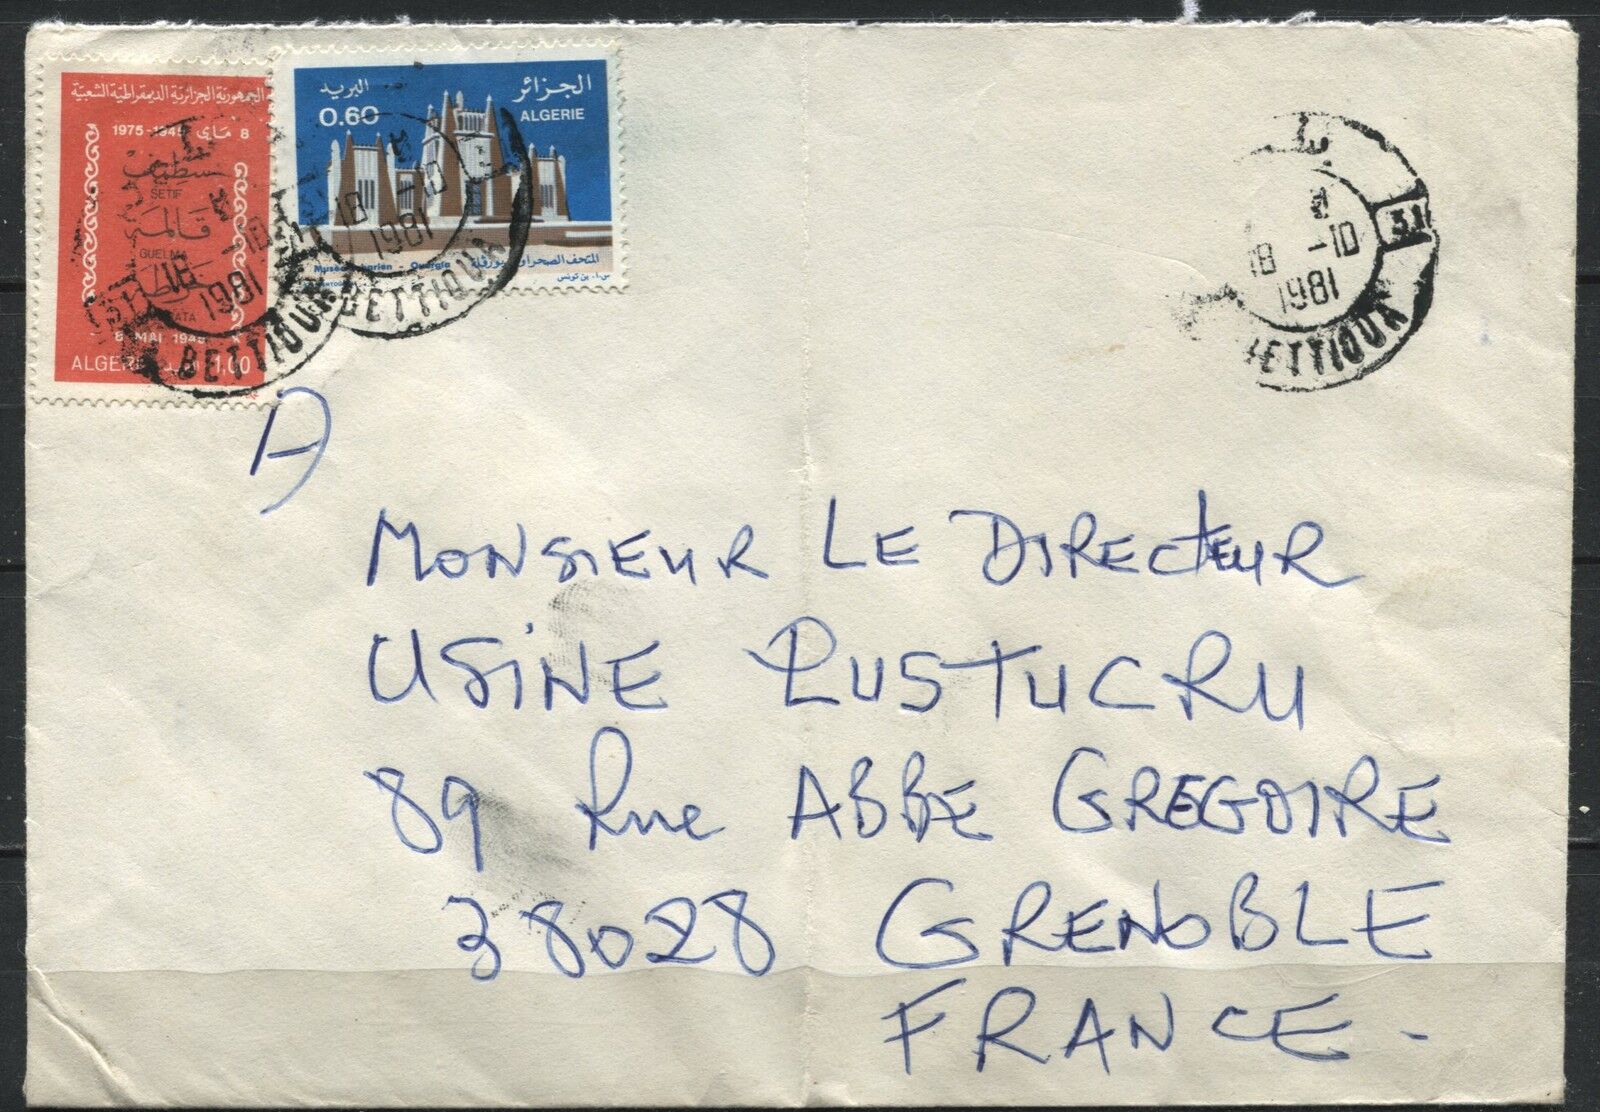 الجمهورية الجزائرية الديمقراطية الشعبية
1975-1945 8 ماي
سطيف
SETIF
قالمة
GUELMA
8 MAI 1945
ALGERIE 1,00
البريد الجزائر
0.60 ALGERIE
المتحف الصحراوي بورقلة
Musée Saharien - Ouargla
18 -10
1981
BETTIOUA
18 -10
1981
BETTIOUA
31
18 -10
1981
BETTIOUA
A
MONSIEUR LE DIRECTEUR
USINE RUSTUCRU
89 Rue ABBE GREGOIRE
38028 GRENOBLE
FRANCE -